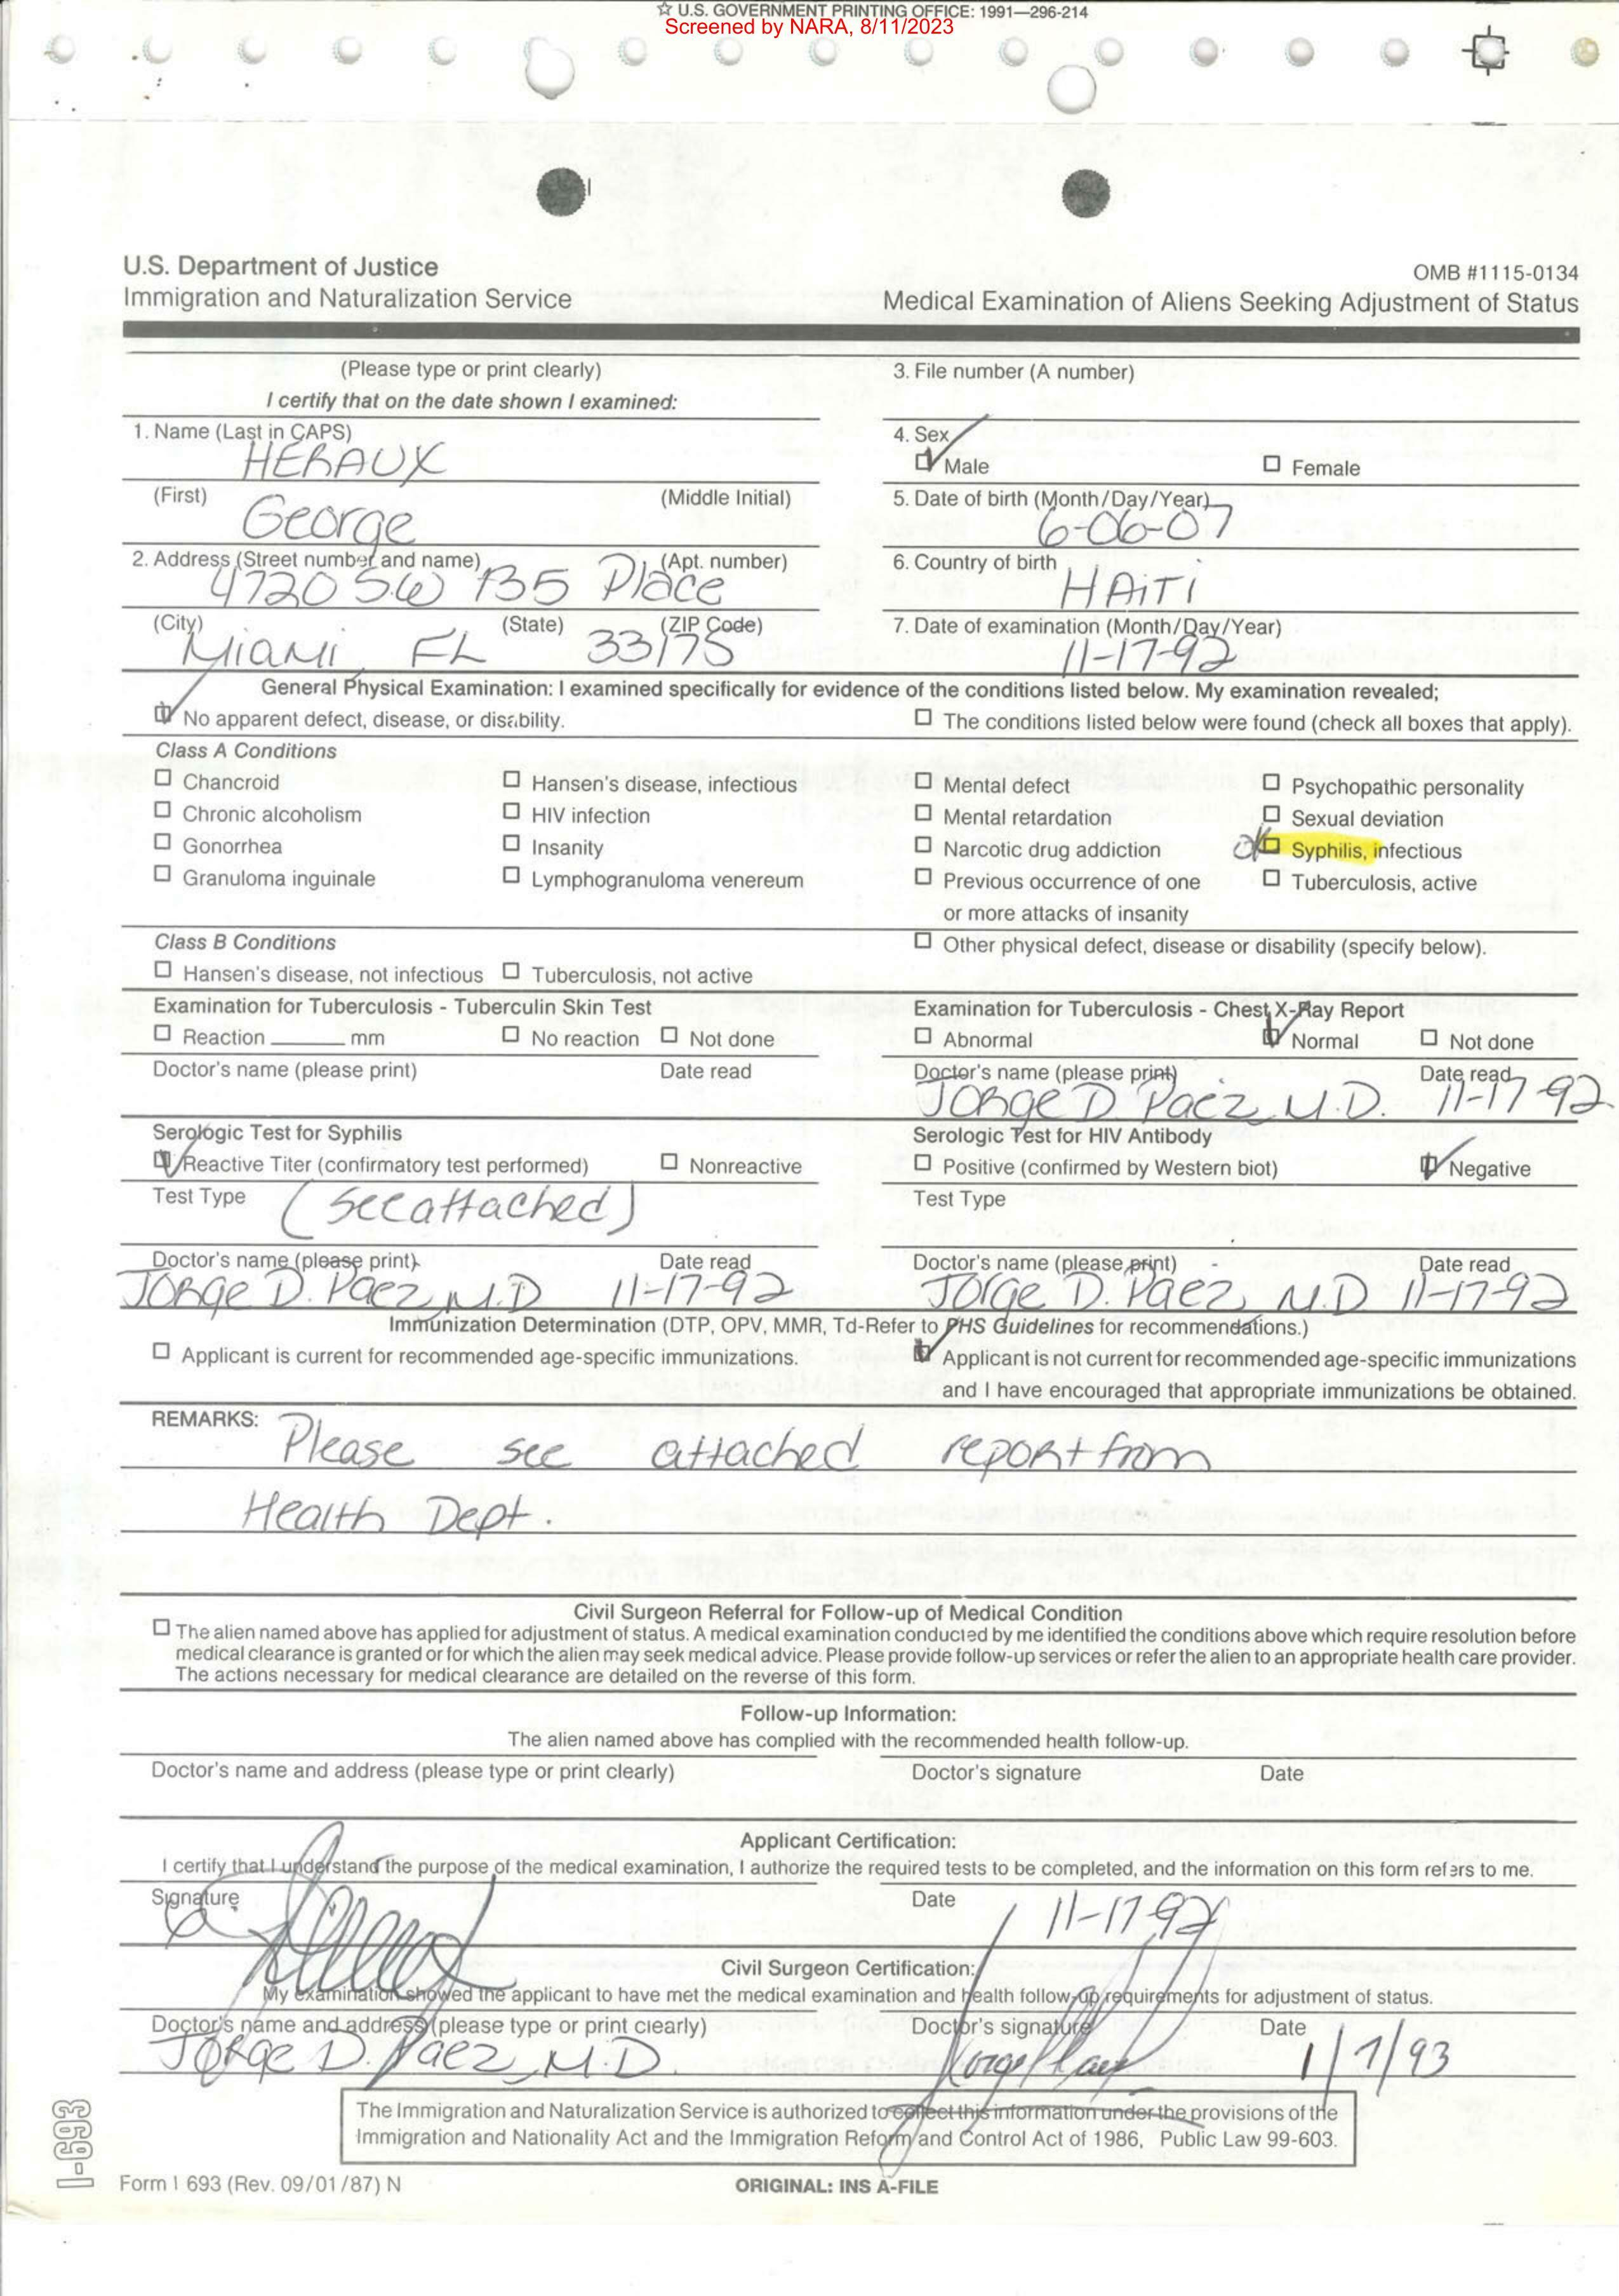 ☆ U.S. GOVERNMENT PRINTING OFFICE: 1991—296-214
Screened by NARA, 8/11/2023
U.S. Department of Justice
Immigration and Naturalization Service
OMB #1115-0134
Medical Examination of Aliens Seeking Adjustment of Status
(Please type or print clearly)
I certify that on the date shown I examined:
3. File number (A number)
1. Name (Last in CAPS)
HERAUX
4. Sex
Male
Female
(First)
(Middle Initial)
George
5. Date of birth (Month/Day/Year)
6-06-07
2. Address (Street number and name)
(Apt. number)
4720 S.W 135 Place
6. Country of birth
HAITI
(City)
(State)
(ZIP Code)
Miami, FL 33175
7. Date of examination (Month/Day/Year)
11-17-92
General Physical Examination: I examined specifically for evidence of the conditions listed below. My examination revealed;
No apparent defect, disease, or disability.
The conditions listed below were found (check all boxes that apply).
Class A Conditions
Chancroid
Hansen's disease, infectious
Mental defect
Psychopathic personality
Chronic alcoholism
HIV infection
Mental retardation
Sexual deviation
Gonorrhea
Insanity
Narcotic drug addiction
ok Syphilis, infectious
Granuloma inguinale
Lymphogranuloma venereum
Previous occurrence of one
or more attacks of insanity
Tuberculosis, active
Class B Conditions
Other physical defect, disease or disability (specify below).
Hansen's disease, not infectious
Tuberculosis, not active
Examination for Tuberculosis - Tuberculin Skin Test
Reaction ______ mm
No reaction
Not done
Doctor's name (please print)
Date read
Examination for Tuberculosis - Chest X-Ray Report
Abnormal
Normal
Not done
Doctor's name (please print)
Date read
Jorge D Paez, M.D. 11-17-92
Serologic Test for Syphilis
Reactive Titer (confirmatory test performed)
Nonreactive
Test Type
(see attached)
Doctor's name (please print)
Date read
Jorge D. Paez, M.D 11-17-92
Serologic Test for HIV Antibody
Positive (confirmed by Western biot)
Negative
Test Type
Doctor's name (please print)
Date read
Jorge D. Paez, M.D 11-17-92
Immunization Determination (DTP, OPV, MMR, Td-Refer to PHS Guidelines for recommendations.)
Applicant is current for recommended age-specific immunizations.
Applicant is not current for recommended age-specific immunizations
and I have encouraged that appropriate immunizations be obtained.
REMARKS:
Please see attached report from
Health Dept.
Civil Surgeon Referral for Follow-up of Medical Condition
The alien named above has applied for adjustment of status. A medical examination conducted by me identified the conditions above which require resolution before
medical clearance is granted or for which the alien may seek medical advice. Please provide follow-up services or refer the alien to an appropriate health care provider.
The actions necessary for medical clearance are detailed on the reverse of this form.
Follow-up Information:
The alien named above has complied with the recommended health follow-up.
Doctor's name and address (please type or print clearly)
Doctor's signature
Date
Applicant Certification:
I certify that I understand the purpose of the medical examination, I authorize the required tests to be completed, and the information on this form refers to me.
Signature
Date
11-17-92
Civil Surgeon Certification:
My examination showed the applicant to have met the medical examination and health follow-up requirements for adjustment of status.
Doctor's name and address (please type or print clearly)
Doctor's signature
Date
Jorge D. Paez, M.D.
1/7/93
The Immigration and Naturalization Service is authorized to collect this information under the provisions of the
Immigration and Nationality Act and the Immigration Reform and Control Act of 1986, Public Law 99-603.
I-693
Form I 693 (Rev. 09/01/87) N
ORIGINAL: INS A-FILE